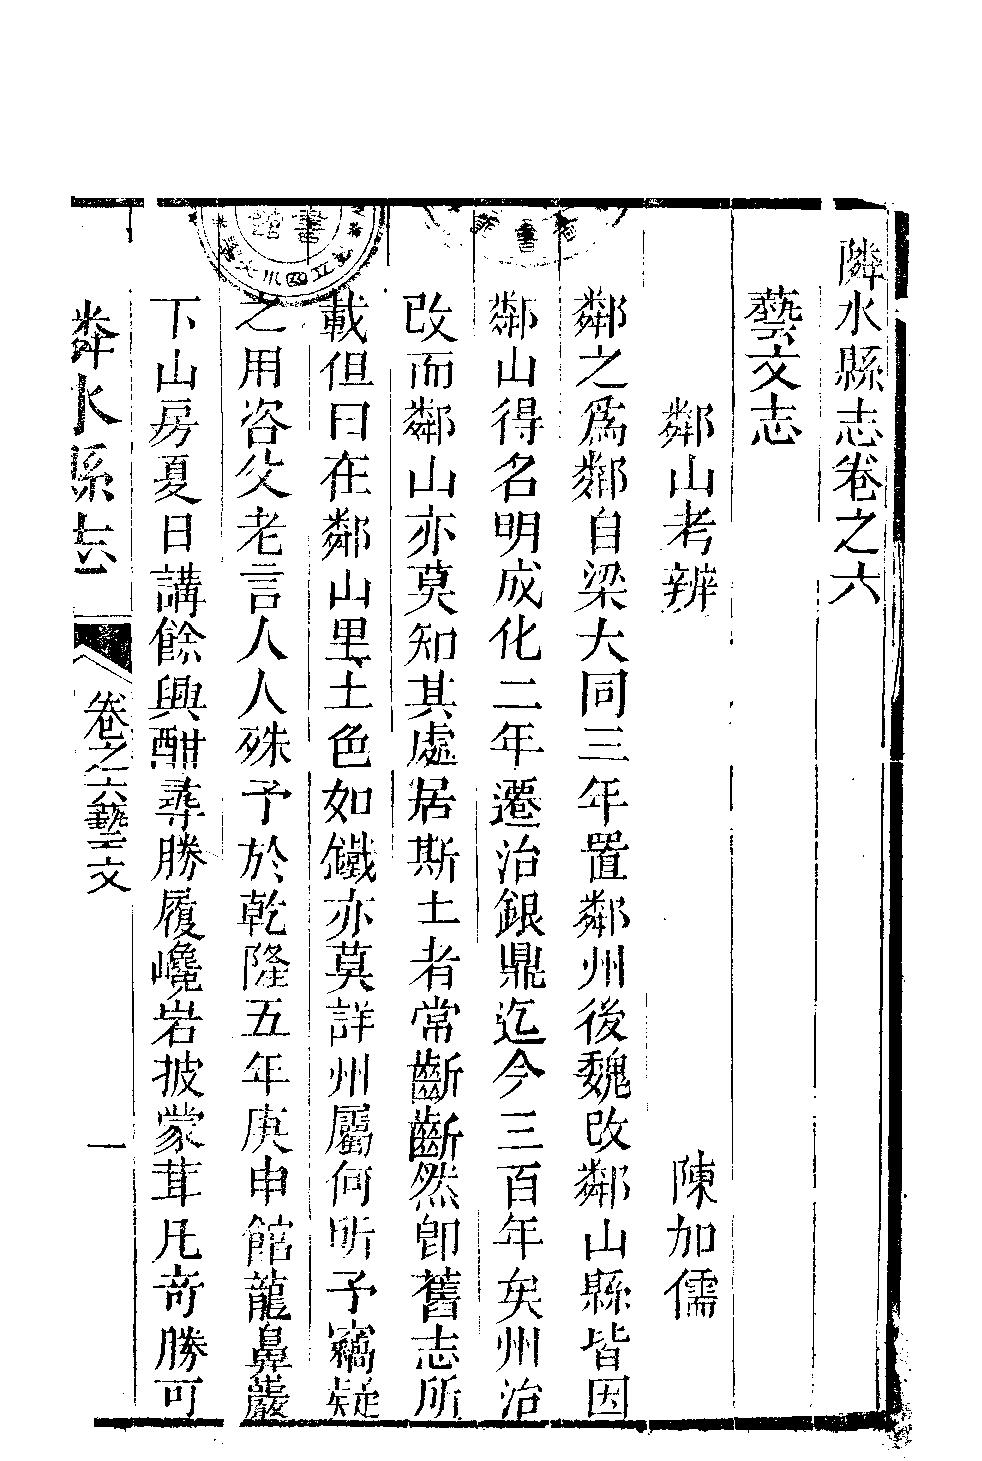 隣水縣志卷之六
藝文志
鄰山考辨
陳加儒
鄰之爲鄰自梁大同三年置鄰州後魏改鄰山縣皆因
鄰山得名明成化二年遷治銀鼎迄今三百年矣州治
改而鄰山亦莫知其處居斯土者常齗齗然卽舊志所
載但曰在鄰山里土色如鐵亦莫詳州屬何所予竊疑
之用咨父老言人人殊予於乾隆五年庚申館龍鼻巖
下山房夏日講餘興酣尋勝履巉岩披蒙茸凡奇勝可
鄰水縣志
卷之六藝文
一